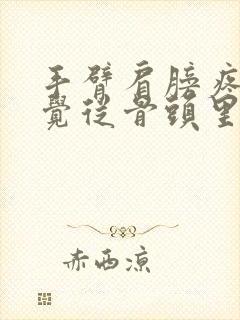 手臂肩膀疼
覺從骨頭里
赤西凉